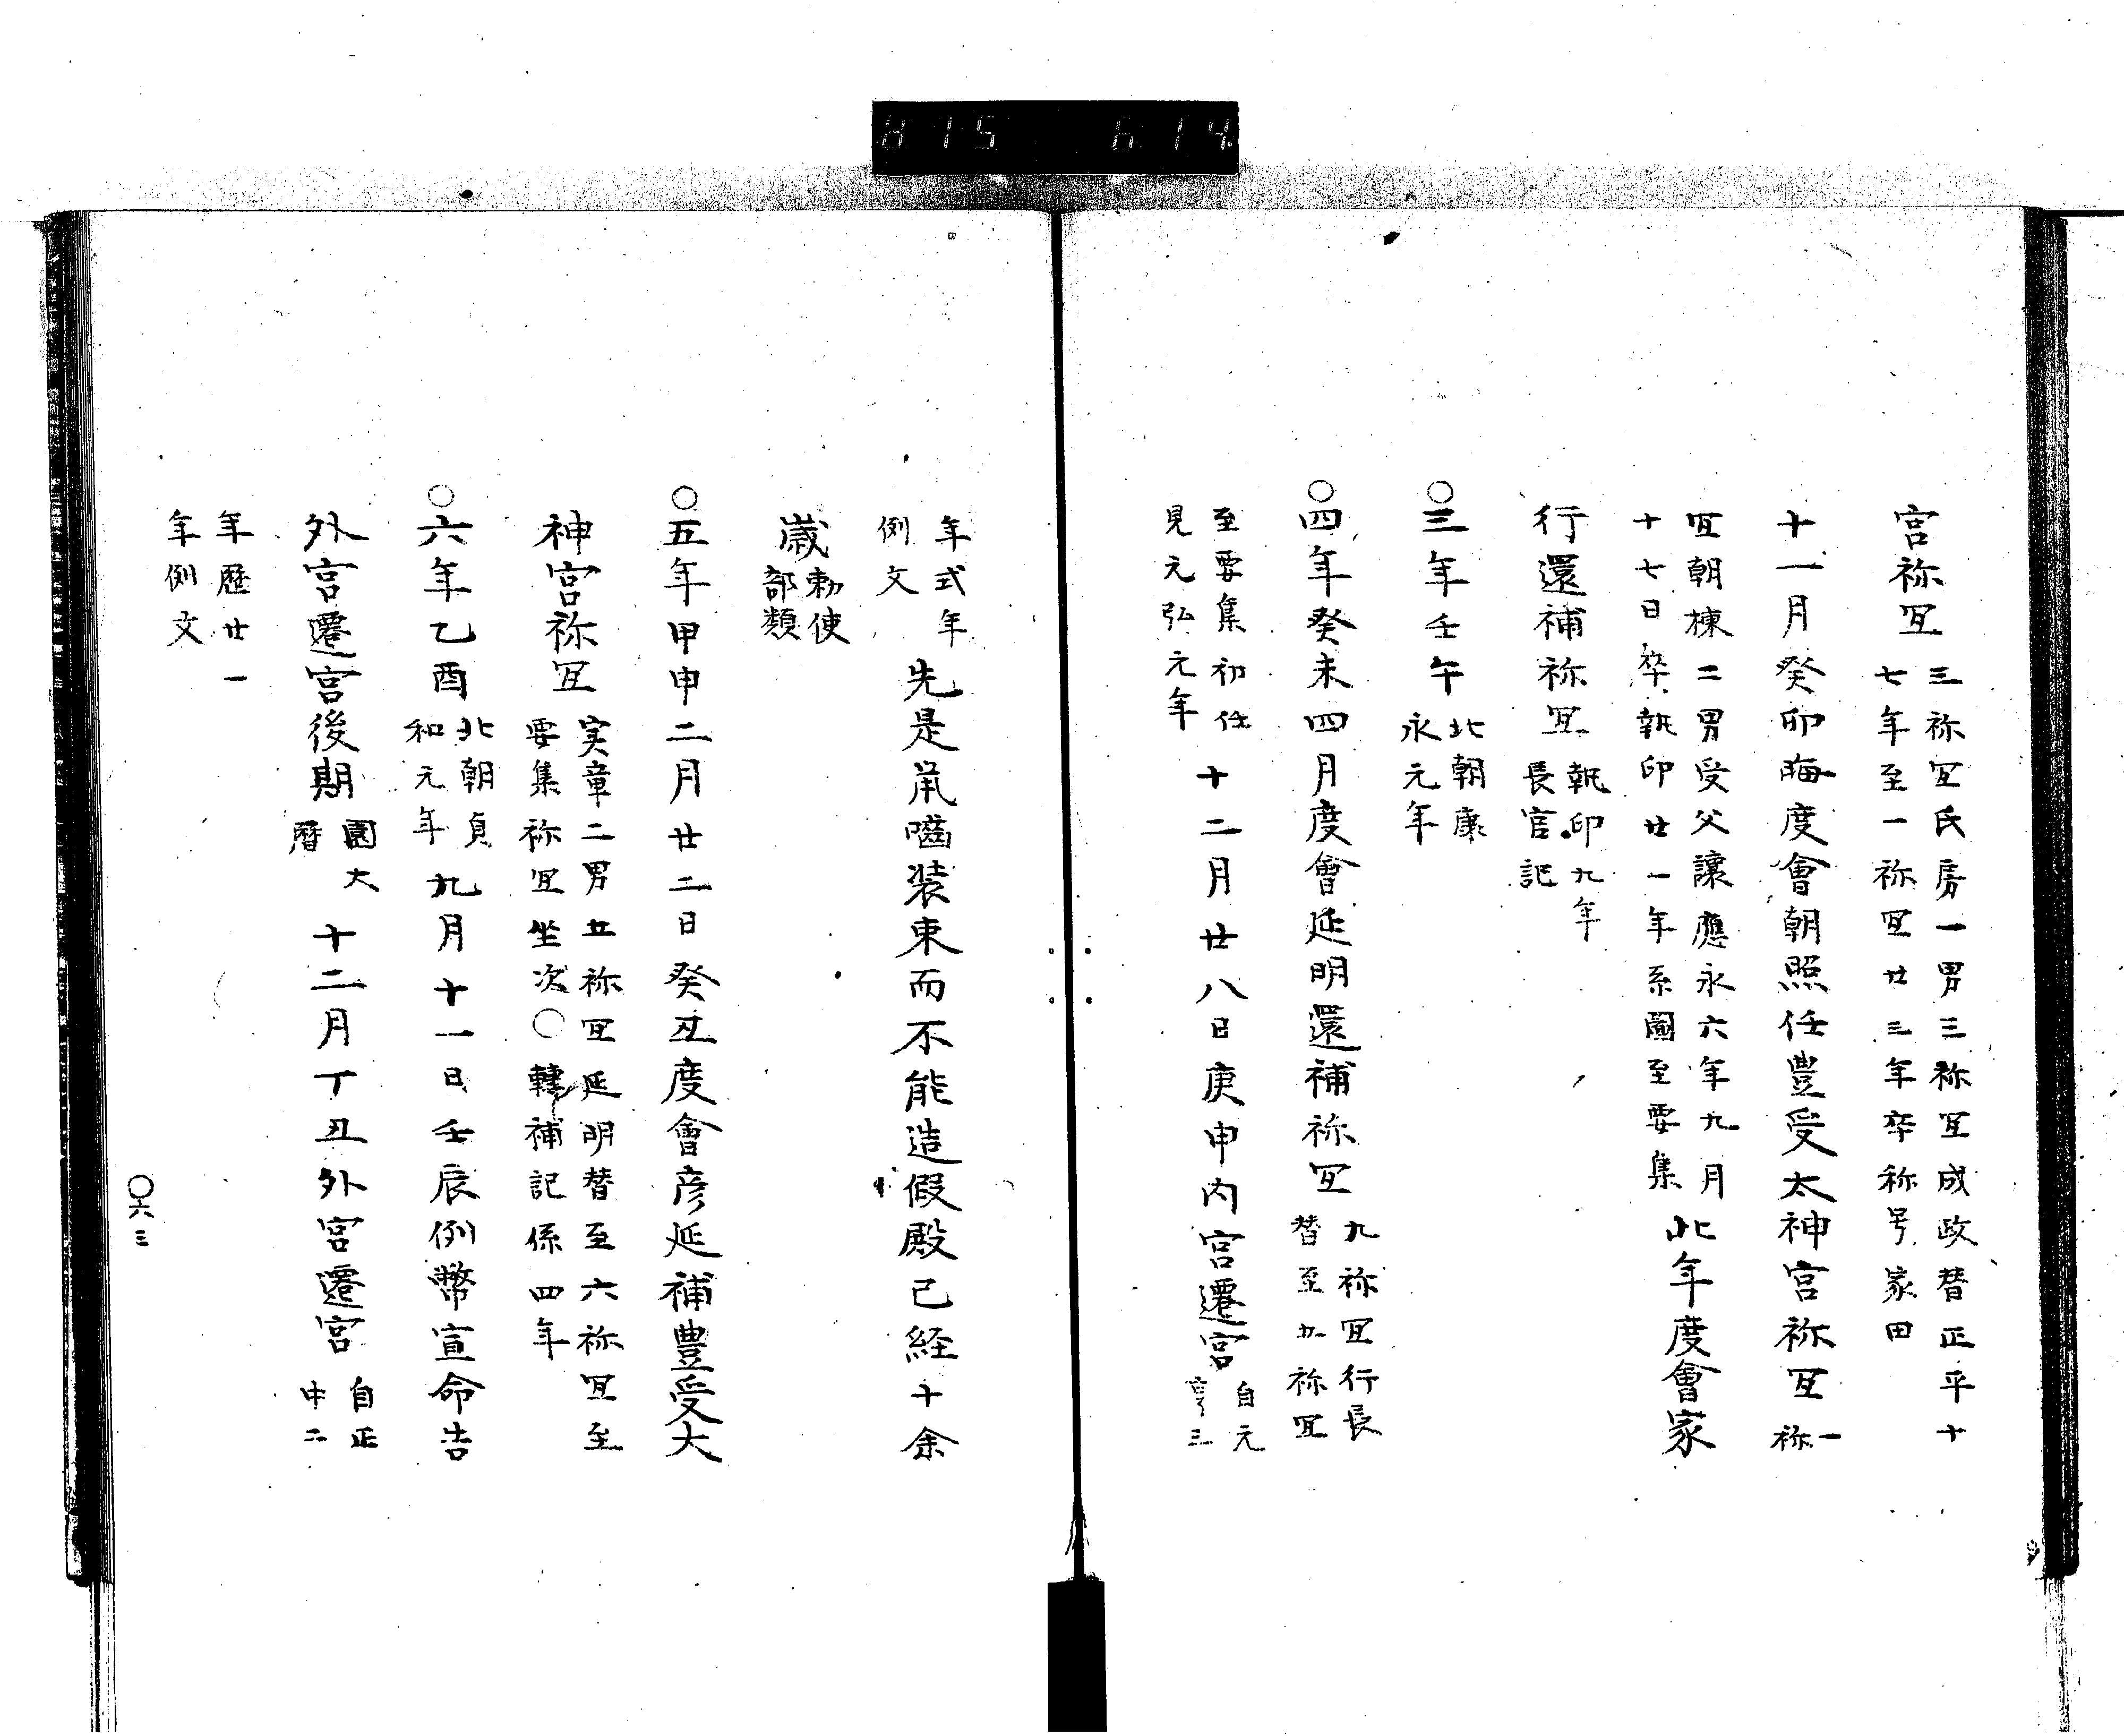 815 614
宮祢冝 三祢冝氏房一男三祢冝成政替正平十
七年至一祢冝廿三年卒称号家田
十一月癸卯晦度會朝照任豊受太神宮祢冝 一
祢
冝朝棟二男受父讓應永六年九月
十七日卒執印廿一年系圖至要集 此年度會家
行還補祢冝 執印九年
長官記
○三年壬午 北朝康
永元年
○四年癸未四月度會延明還補祢冝 九祢冝行長
替至五祢冝
至要集初任
見元弘元年 十二月廿八日庚申内宮遷宮 自元
亨三
年式年
例文 先是鼡嚙装束而不能造假殿已経十余
歳 勅使
部類
○五年甲申二月廿二日癸丑度會彦延補豊受大
神宮祢冝 実章二男五祢冝延明替至六祢冝至
要集祢冝坐次○轉補記係四年
○六年乙酉 北朝貞
和元年 九月十一日壬辰例幣宣命告
外宮遷宮後期 園太
暦 十二月丁丑外宮遷宮 自正
中二
年歴廿一
年例文
○六三